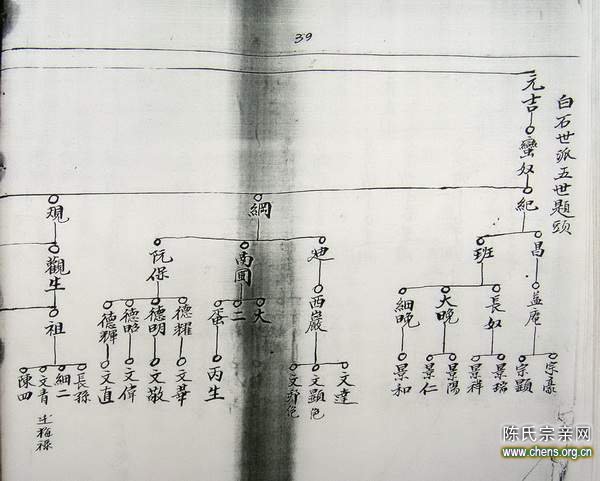 39
白石世派五世題頭
元吉
蠻奴
紀
昌
班
益庵
宗豪
宗顯
長奴
大晚
細晚
景瑞
景祥
景陽
景仁
景和
綱
南園
阮保
西巖
文達
文顯
大
二
蛋
丙生
德耀
德明
德昭
德輝
文華
文敬
文偉
文直
觀生
祖
長孫
細二
文青
生梅祿
陳四
陈氏宗亲网
www.chens.org.cn